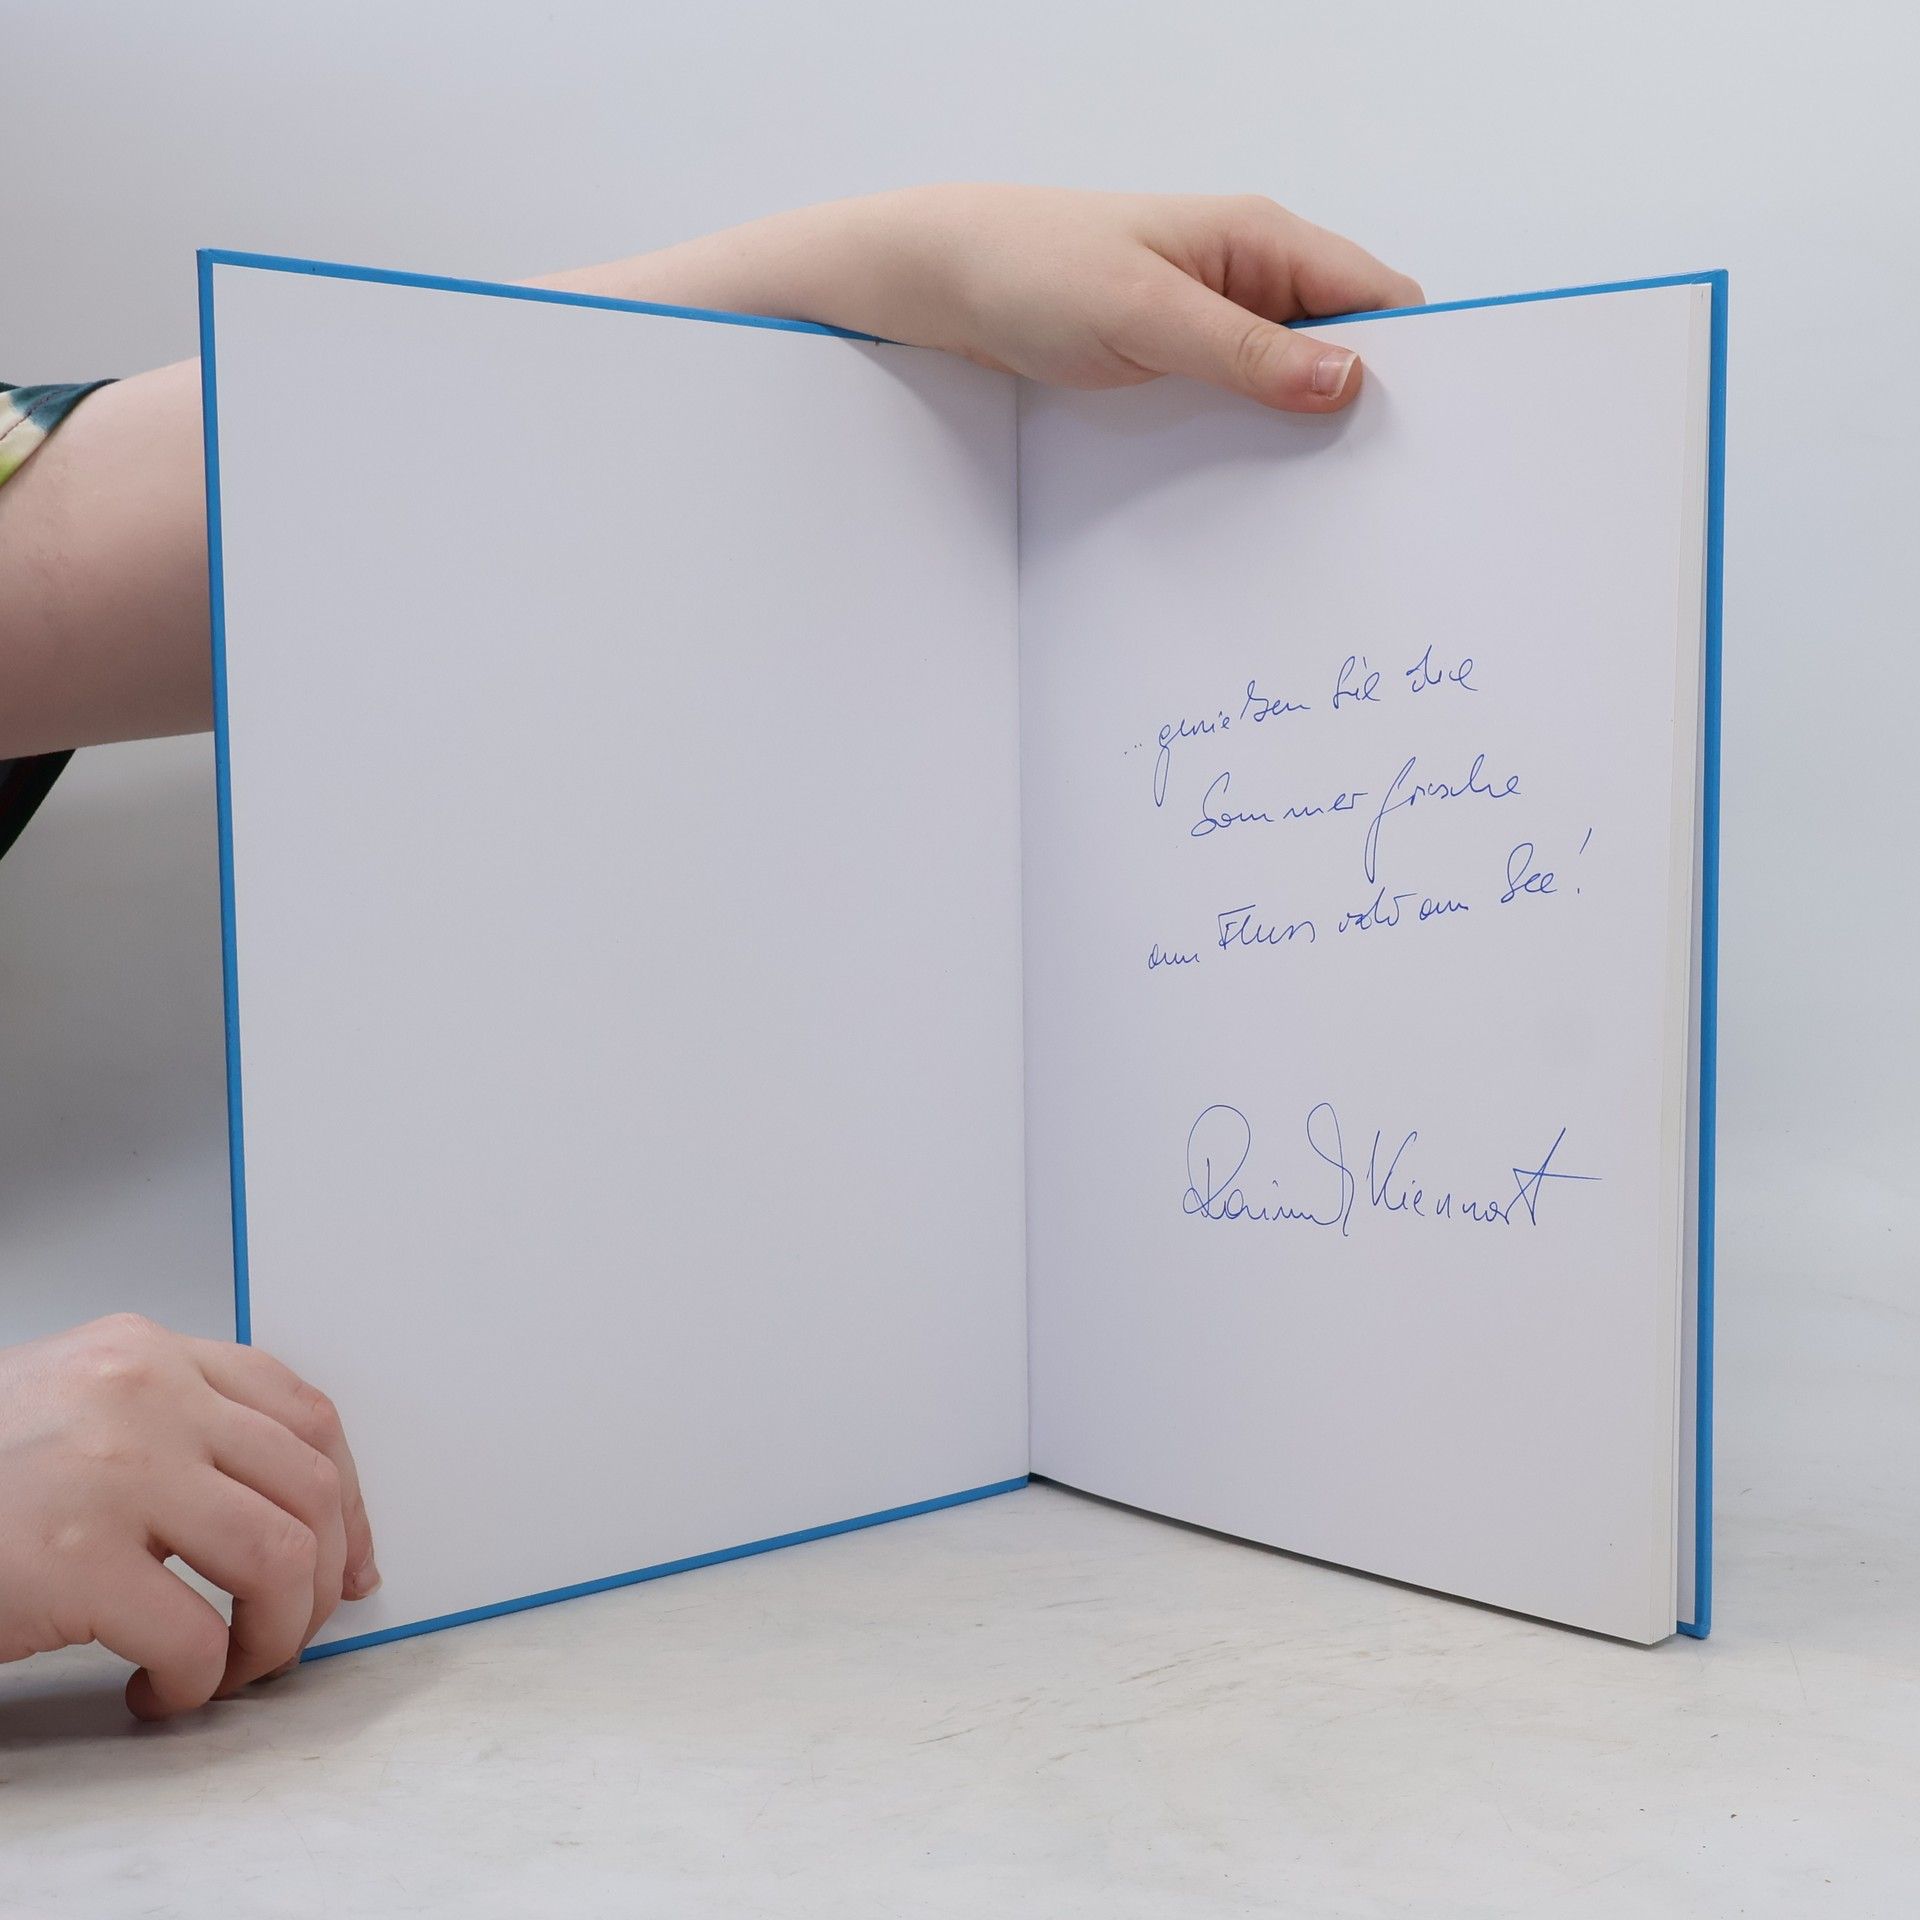 ... genießen Sie die
Sommerfrische
am Fluss oder am See!
Raimund Kiennast